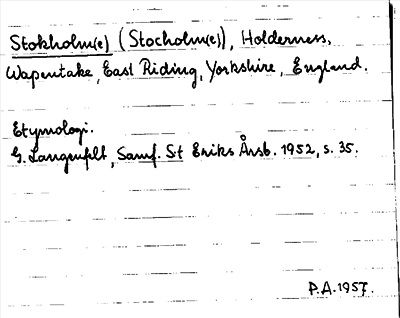 Stokholm(e) (Stocholm(e)), Holderness,
Wapentake, East Riding, Yorkshire, England.
Etymologi.
G. Langenfelt, Samf. St Eriks Årsb. 1952, s. 35.
P.A. 1957.